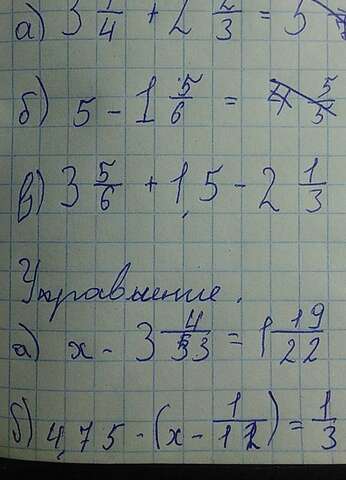 а) 3 1/4 + 2 2/3 = 5
б) 5 - 1 5/6 =
в) 3 5/6 + 1,5 - 2 1/3
Укравнение.
а) x - 3 4/33 = 1 19/22
б) 4,75 - (x - 1/12) = 1/3